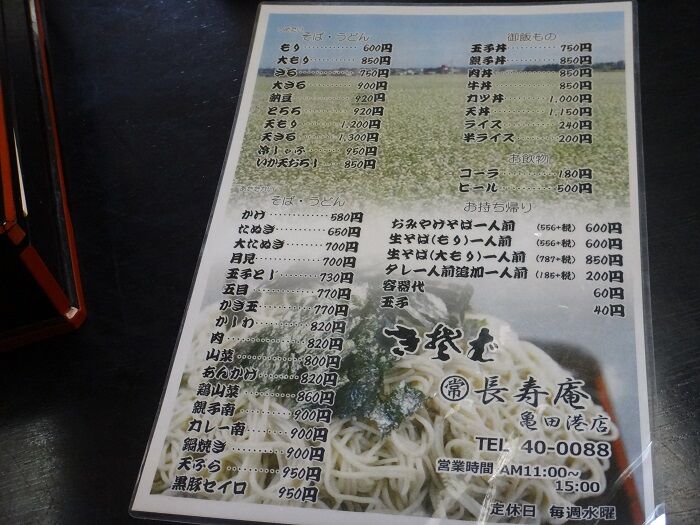 つめたい そば・うどん
もり 600円
大もり 850円
ざる 750円
大ざる 900円
納豆 920円
とろろ 920円
天もり 1,200円
天ざる 1,300円
冷しゃぶ 950円
いか天おろし 850円
あたたかい そば・うどん
かけ 580円
たぬき 650円
大たぬき 700円
月見 700円
玉子とじ 730円
五目 770円
かき玉 770円
かしわ 820円
肉 820円
山菜 800円
あんかけ 820円
鶏山菜 860円
親子南 900円
カレー南 900円
鍋焼き 900円
天ぷら 950円
黒豚セイロ 950円
御飯もの
玉子丼 750円
親子丼 850円
肉丼 850円
牛丼 850円
カツ丼 1,000円
天丼 1,150円
ライス 240円
半ライス 200円
お飲物
コーラ 180円
ビール 500円
お持ち帰り
おみやげそば一人前 (556+税) 600円
生そば(もり)一人前 (556+税) 600円
生そば(大もり)一人前 (787+税) 850円
タレ一人前追加一人前 (185+税) 200円
容器代 60円
玉子 40円
きそば
常 長寿庵
亀田港店
TEL 40-0088
営業時間 AM11:00〜
15:00
定休日 毎週水曜